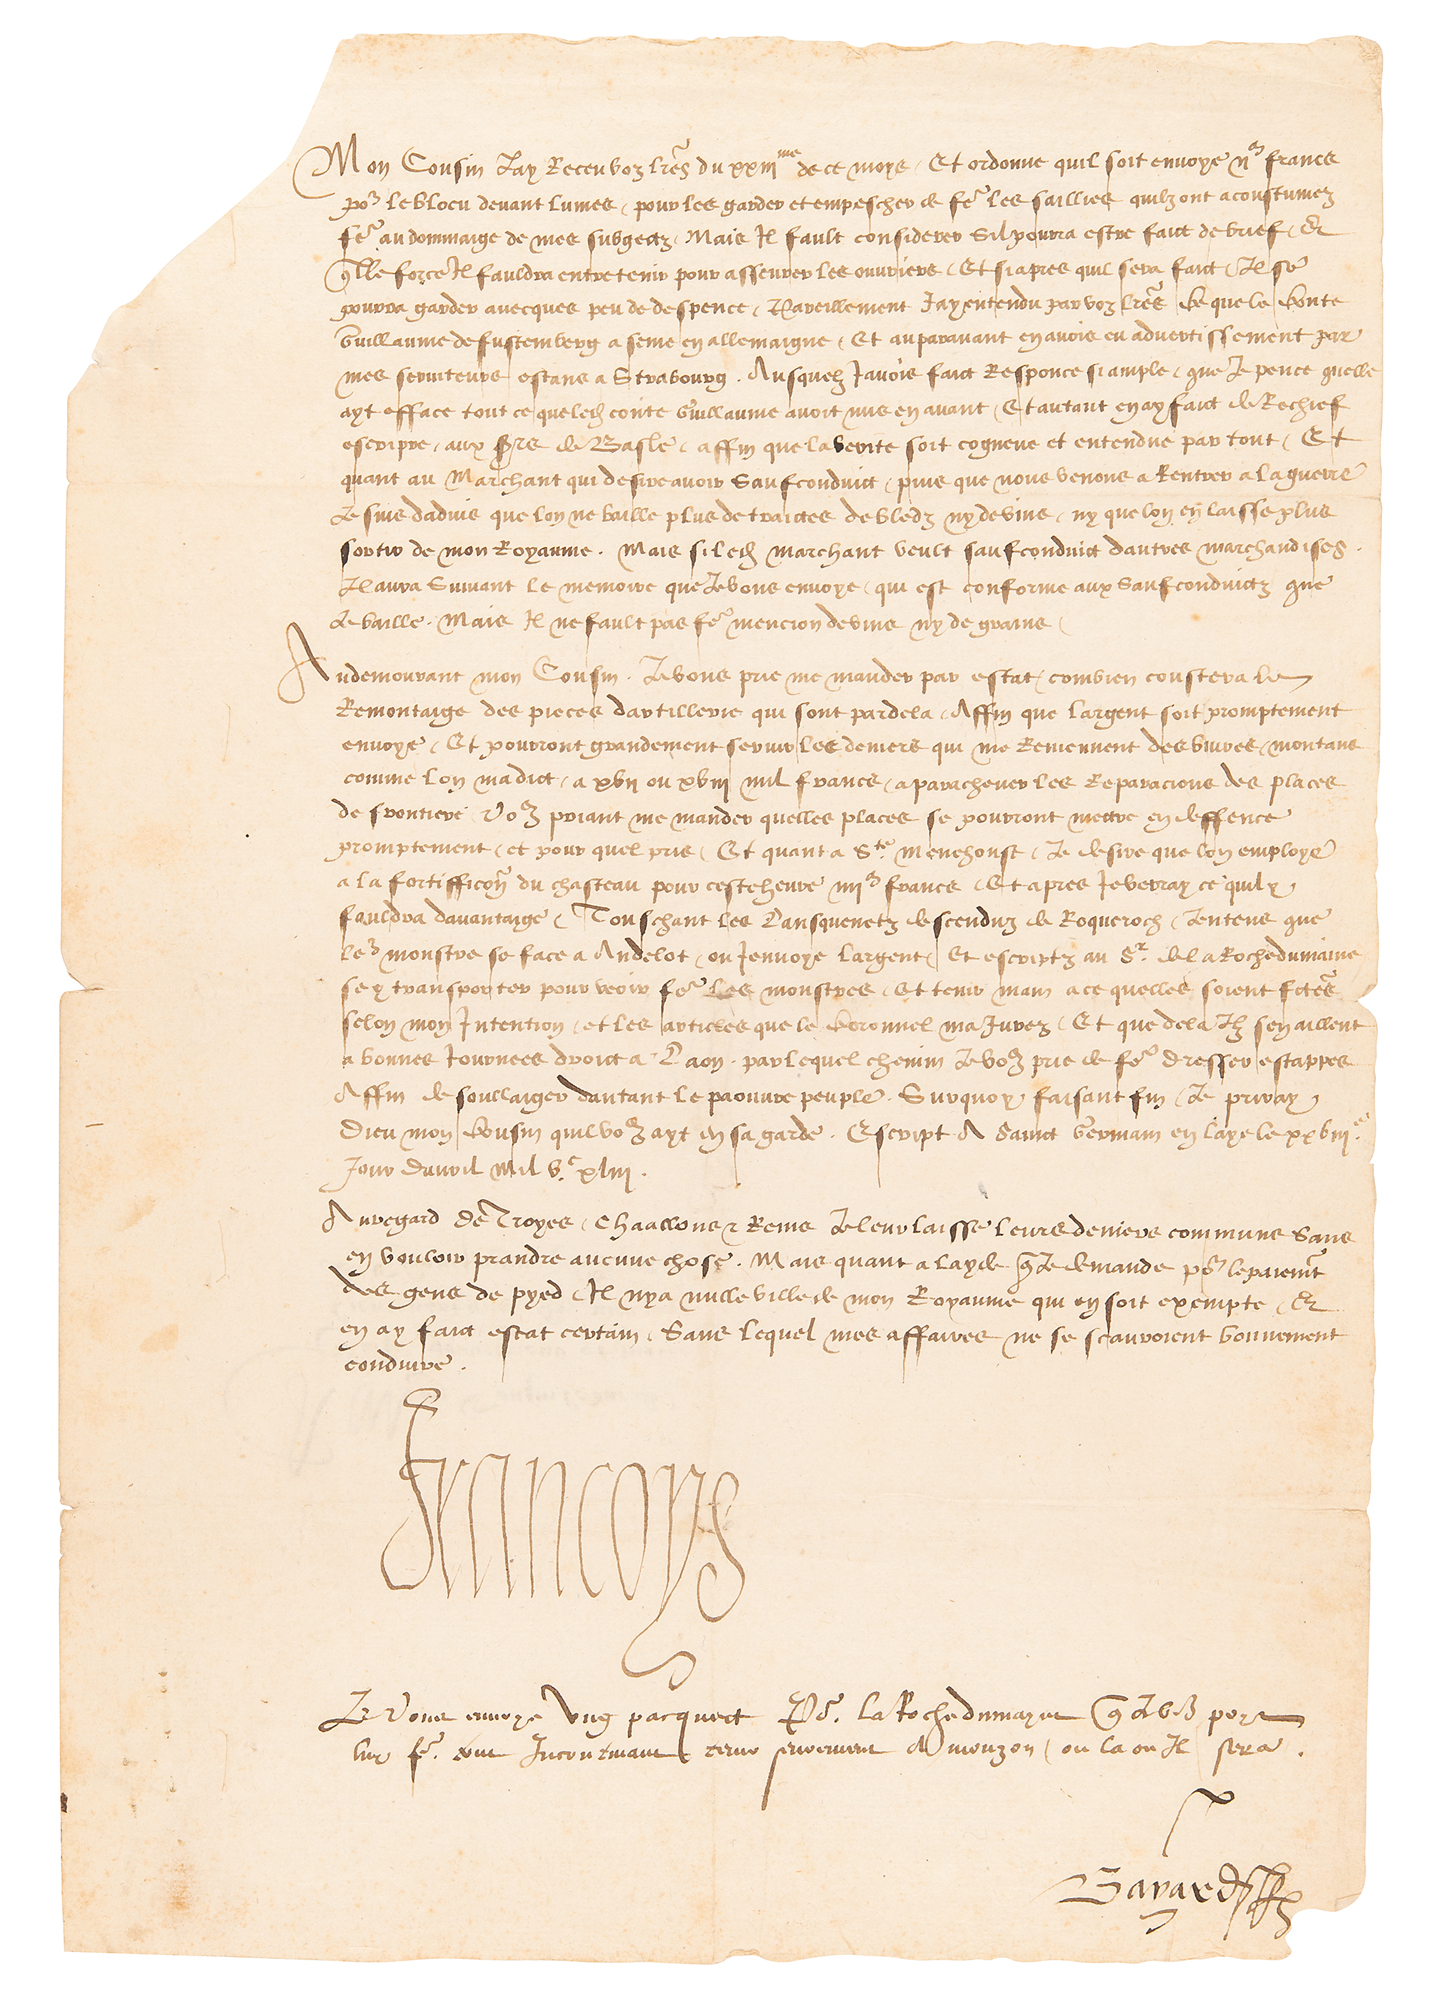 Mon Cousin Jay Receu voz lres du xxiii me de ce moys, Et ordonne quil soit envoye francs
por le blocu devant lumes, pour les garder et empescher de fere les saillies quilz ont acoustumez
fere au dommaige de mes subgectz, Mais Il fault considerer Sil pourra estre faict de brief, Et
quelle force Il fauldra entretenir pour asseurer les ouvriers, Et si apres quil sera faict, Il se
pourra garder avecques peu de despence, Pareillement Jay entendu par voz lres Ce que le Conte
Guillaume de fustemberg a seme en allemaigne, Et auparavant en avois eu advertissement par
mes serviteurs estans a Strabourg. Ausquelz Javois faict Responce si ample, que Je pence quelle
ayt efface tout ce que led conte Guillaume avoit mis en avant, Et autant en ay faict de Rechief
escripre, aux Srs de Basle, affin que la verite soit cogneue et entendue par tout, Et
quant au Marchant qui desire avoir Saufconduict, puis que nous venons a Rentrer a la guerre
Je suis dadvis que lon ne baille plus de traictes de bledz ny de vins, ny que lon en laisse plus
sortir de mon Royaume. Mais si led marchant veult saufconduict dautres marchandises.
Il aura Suivant le memoire que Je vous envoye, qui est conforme aux Saufconduictz que
Je baille. Mais Il ne fault pas fere mencion de vins ny de grains,
Au demourant mon Cousin. Je vous prie me mander par estat, combien coustera le
Remontaige des pieces dartillerie qui sont par dela, Affin que largent soit promptement
envoye, Et pourront grandement servir les deniers qui me Reviennent des vivres, montans
comme lon madict, a xvii ou xviii mil francs, a parachever les Reparacions des places
de frontiere Voz priant me mander quelles places se pourront mectre en deffence
promptement, et pour quel pris, Et quant a Ste Menehoust, Je desire que lon employe
a la fortifficon du chasteau pour ceste heure iiii m francs, Et apres Je verray ce quil y
fauldra davantaige, Touschant les Lansquenetz descenduz de Roqueroch, Jentens que
leur monstre se face a Andelot, ou Jenvoye largent, Et escriptz au Sr. de la Rochedumaine
se y transporter pour veoir fere Les monstres, Et tenir main a ce quelles soient fctes
selon mon Intention, et les articles que le Coronnel ma Jurez, Et que dela Ilz sen aillent
a bonnes Journees droict a Laon. par lequel chemin Je voz prie de fere dresser estappes
Affin de soullaiger dautant le paouvre peuple. Surquoy faisant fin, Je priray
Dieu mon Cousin quil voz ayt en sa garde. Escript A Sainct Germain en Laye le xxviii e
Jour davril Mil Vc xliii.
Au regard de Troyes, Chaallons & Reims Je leur laisse leurs deniers communs Sans
en vouloir prandre aucune chose. Mais quant a layde que Je demande por le paiemt
des gens de pyed, Il nya nulle ville de mon Royaume qui en soit exempte, Et
en ay faict estat certain, Sans lequel mes affaires ne se scauroient bonnement
conduire.
Francoys
Je Vous envoye Ung pacquect Por. la Rochedumayne que Je voz prye
luy fere tenir Incontinant a mouzon, ou la ou Il sera.
Bayard